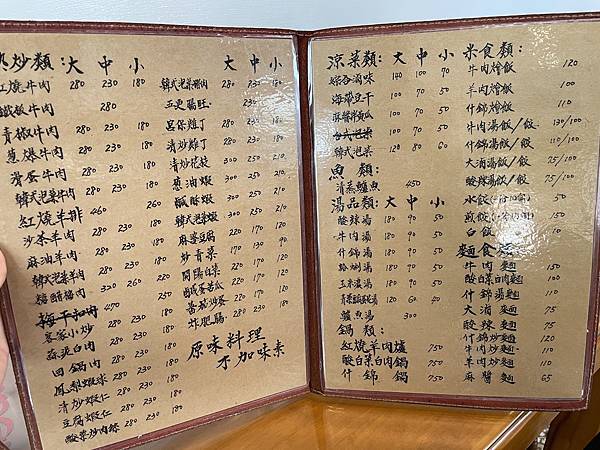 熱炒類:大 中 小
紅燒牛肉 280 230 180
鐵板牛肉 280
青椒牛肉 280 230 180
蔥爆牛肉 280 230 180
滑蛋牛肉 280 230 180
韓式泡菜牛肉 280 230 180
紅燒羊排 460 260
沙茶羊肉 280 230 180
麻油羊肉 280 230 180
韓式泡菜羊肉 280 230 180
糖醋豬肉 280 230 180
470 250
客家小炒 280 230 180
蒜泥白肉 280 230 180
回鍋肉 280 230 180
鳳梨蝦球 280 230 180
清炒蝦仁 280 230 180
豆腐蝦仁 280 230 180
酸菜炒肉絲 280 230 180
大 中 小
韓式泡菜豬肉 280 230 180
五更腸旺 230
宮保雞丁 280 230 180
清炒雞丁 280 230 180
清炒花枝 300 250 210
蔥油蝦 300 250 210
鹹酥蝦 300 250 210
韓式泡菜蝦 300 250 210
麻婆豆腐 220 170 120
炒青菜 170 130 90
開陽白菜 220 170 120
鹹蛋苦瓜 220 170 120
蕃茄炒蛋 220 170 120
炸肥腸 280 230 180
原味料理
不加味素
涼菜類:大 中 小
綜合滷味 140 100 70
海帶豆干 100 70 50
麻醬拌黃瓜 100 70 50
台式泡菜 100 70 50
韓式泡菜 120 80 60
魚類:
清蒸鱸魚 450
湯品類:大 中 小
酸辣湯 180 90 50
牛肉湯 180 90 50
什錦湯 180 90 50
蛤蜊湯 180 90 50
玉米濃湯 180 90 50
青菜豆腐湯 120 60 40
鱸魚湯 300
鍋類:
紅燒羊肉爐 750
酸白菜白肉鍋 750
什錦鍋 750
米食類:
牛肉燴飯 120
羊肉燴飯 100
什錦燴飯 110
牛肉湯飯/餃 130/100
什錦湯飯/餃 110/100
大滷湯飯/餃 75/100
酸辣湯飯/餃 75/100
水餃(一份10個) 50
煎餃 50
白飯 10
麵食類:
牛肉麵 150
酸白菜白肉麵 100
什錦湯麵 110
大滷麵 75
酸辣麵 75
什錦炒麵 120
牛肉炒麵 110
羊肉炒麵 110
麻醬麵 65